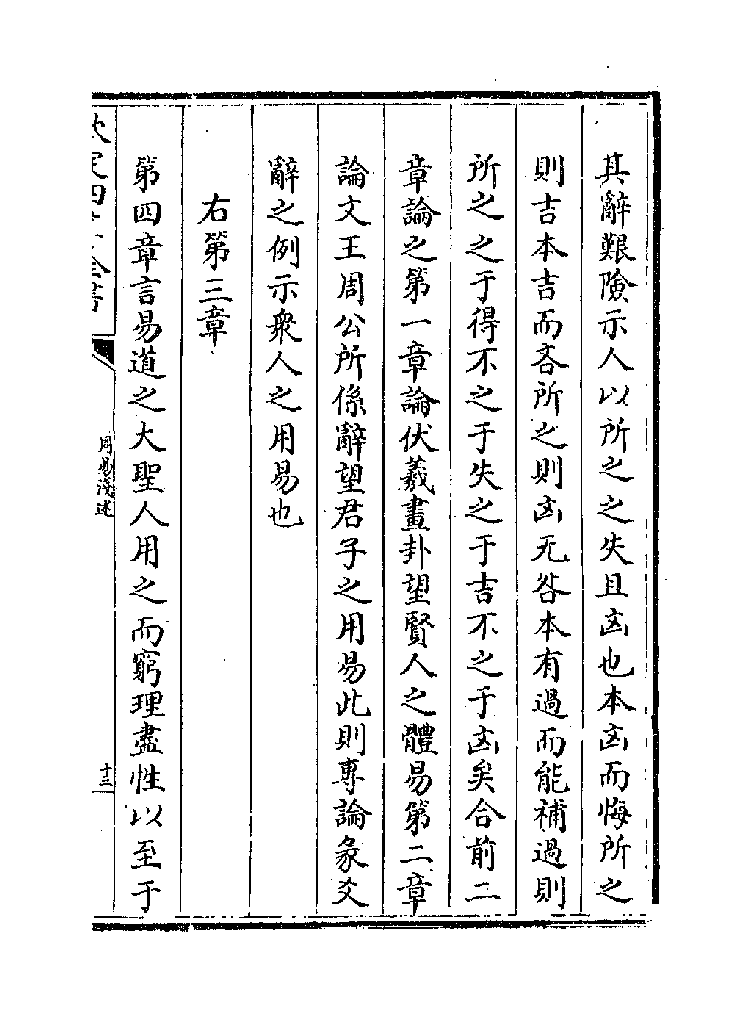 其辭艱險示人以所之之失且凶也本凶而悔所之
則吉本吉而吝所之則凶无咎本有過而能補過則
所之之于得不之于失之于吉不之于凶矣合前二
章論之第一章論伏羲畫卦望賢人之體易第二章
論文王周公所係辭望君子之用易此則專論彖爻
辭之例示衆人之用易也
右第三章
第四章言易道之大聖人用之而窮理盡性以至于
欽定四庫全書
周易淺述
十三